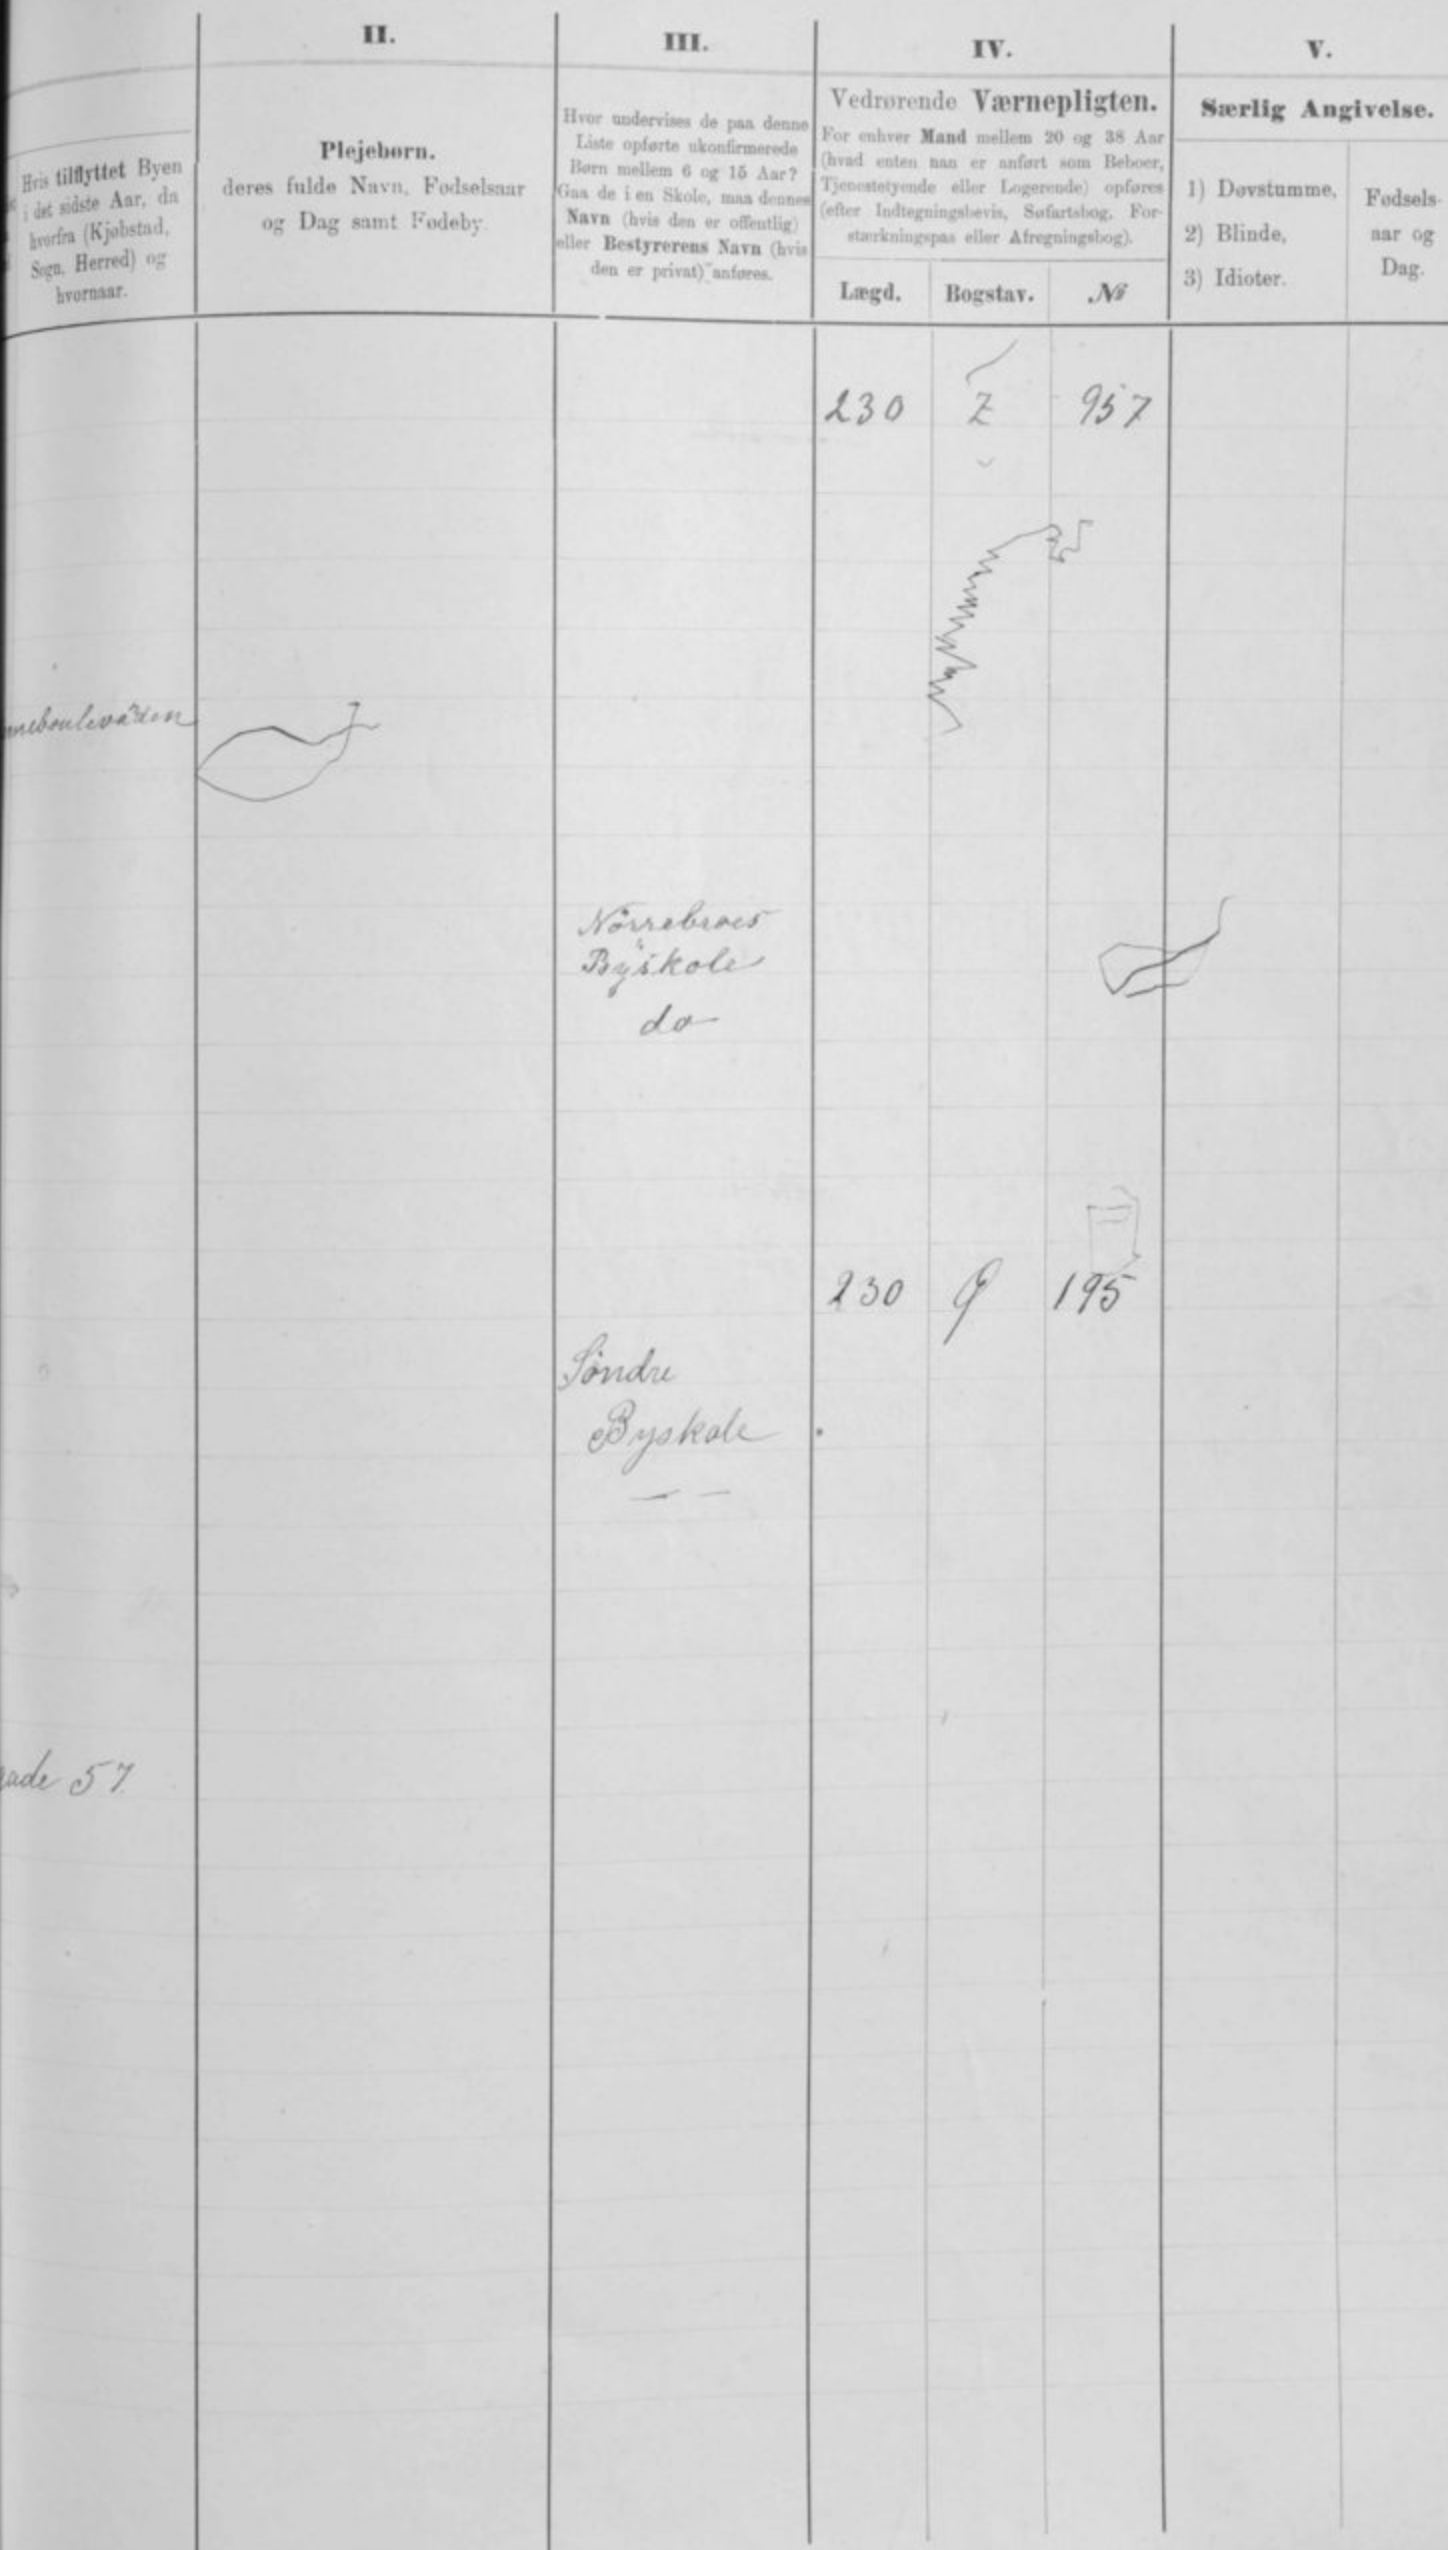 II.
III.
IV.
V.
Hvis tilflyttet Byen
i det sidste Aar, da
hvorfra (Kjøbstad,
Sogn, Herred) og
hvornaar.
Plejebørn.
deres fulde Navn, Fødselsaar
og Dag samt Fødeby.
Hvor undervises de paa denne
Liste opførte ukonfirmerede
Børn mellem 6 og 15 Aar?
Gaa de i en Skole, maa dennes
Navn (hvis den er offentlig)
eller Bestyrerens Navn (hvis
den er privat) anføres.
Vedrørende Værnepligten.
For enhver Mand mellem 20 og 38 Aar
(hvad enten han er anført som Beboer,
Tjenestetyende eller Logerende) opføres
(efter Indtegningsbevis, Søfartsbog, For-
stærkningspas eller Afregningsbog).
Lægd.
Bogstav.
№
Særlig Angivelse.
1) Døvstumme,
2) Blinde,
3) Idioter.
Fødsels-
aar og
Dag.
230 Z 957
neboulevarden
Nørrebroes
Byskole
do
230 Q 195
Söndre
Byskole
— —
gade 57.